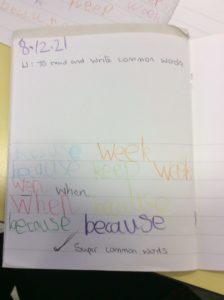 8.12.21
LI: To read and write common words
because week
because keep week
went when
when because
because because
✓ Super common words